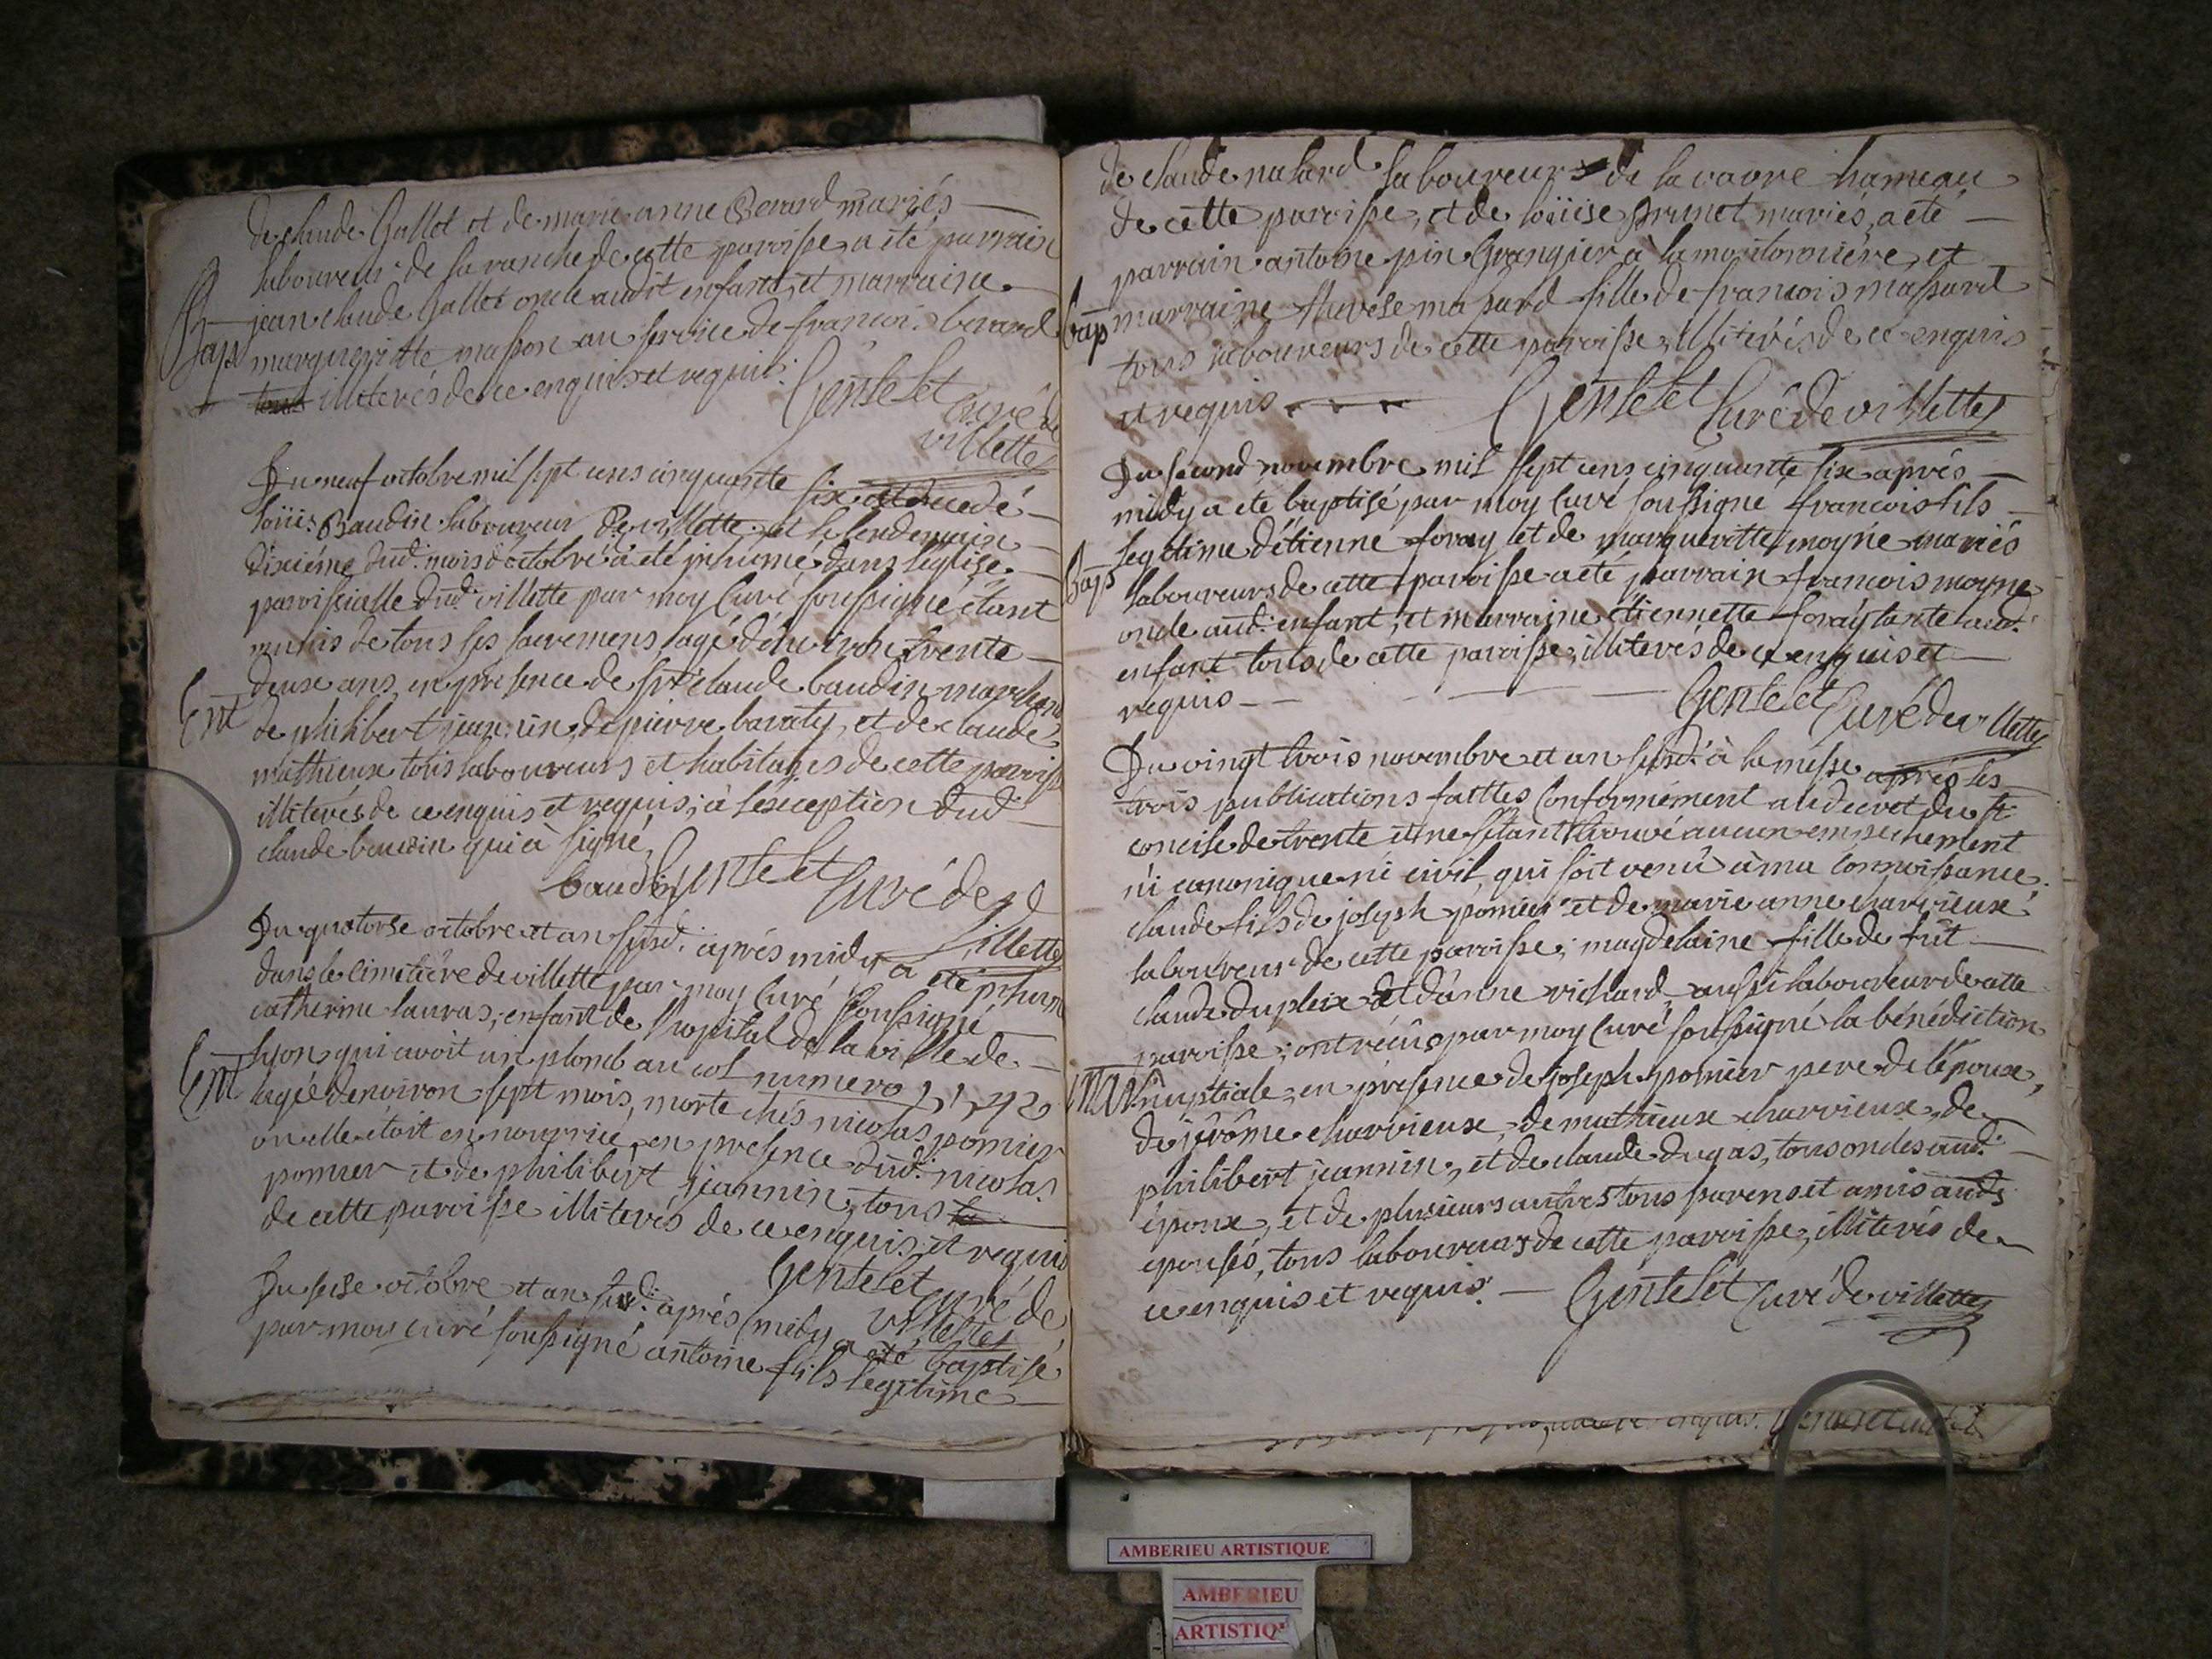 de claude Gallet et de marie anne Berard mariés
laboureur de la ranche de cette paroisse a été parrain
Bap jean claude Gallet oncle audit enfant, et marraine
margueritte masson au service de francois berard
tous illiterés de ce enquis et requis. Gentelet
Curé de
villette
Du neuf octobre mil sept cens cinquante six est decedé
loüis Baudin laboureur de villette, et le lendemain
dixiéme dud. mois d'octobre a été inhumé dans l'eglise
paroissialle dud. villette par moy Curé soussigné étant
munis de tous ses sacremens agé d'environ trente
deux ans en presence de sr claude baudin marchand
Ent de philibert jeannin, de pierre baraty, et de claude
mathieux tous laboureurs et habitans de cette paroisse
illiterés de ce enquis et requis; à l'exception dud.
claude baudin qui a signé.
baudin Gentelet Curé de
Villette
Du quatorse octobre et an susd. aprés midy a été inhum
dans le cimetiére de villette par moy Curé soussigné
catherine lauras, enfant de l'hopital de la ville de
lyon qui avoit un plomb au col numero
Ent agée denviron sept mois, morte chés nicolas pomier
ou elle étoit en nourrice, en presence dud. nicolas
pomier et de philibert jeannin, tous
de cette paroisse illiterés de ce enquis et requis
Gentelet Curé de
villette
Du seise octobre et an susd. aprés midy a été baptisé
par moy curé soussigné antoine fils legitime
de claude nalard laboureur de la vavre hameau
de cette paroisse, et de loüise prunet mariés, a été
parrain antoine pin Grangier à la moutonniére, et
bap marraine therése massard fille de francois massard
tous laboureurs de cette paroisse, illiterés de ce enquis
et requis. Gentelet Curé de villette
Du second novembre mil sept cens cinquante six aprés
midy a été baptisé par moy Curé soussigné francois fils
legitime d'étienne foray et de margueritte moyne mariés
Bap laboureurs de cette paroisse a été parrain francois moyne
oncle aud. enfant, et marraine étiennette foray tante aud.
enfant tous de cette paroisse, illiterés de ce enquis et
requis
Gentelet Curé de villette
Du vingt trois novembre et an susd. à la messe aprés les
trois publications faittes Conformément au decret du st
concile de trente et ne s'étant trouvé aucun empechement
ni canonique ni civil, qui soit venû à ma connoissance
claude fils de joseph pomier et de marie anne charvieux
laboureur de cette paroisse; magdelaine fille de fut
claude dupleix et d'anne richard aussi laboureur de cette
paroisse; ont reçûs par moy Curé soussigné la bénédiction
Mar nuptiale, en présence de joseph pomier pere de l'epoux,
de jérôme charvieux, de mathieux charvieux, de
philibert jeannin, et de claude dugas, tous oncles aud.
époux, et de plusieurs autres tous parens et amis auds
epousés, tous laboureurs de cette paroisse, illiterés de
ce enquis et requis. Gentelet Curé de villette
AMBERIEU ARTISTIQUE
AMBERIEU
ARTISTIQ